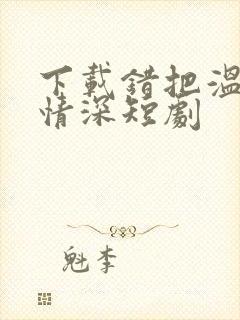 下載錯把溫
情深短劇
魁李